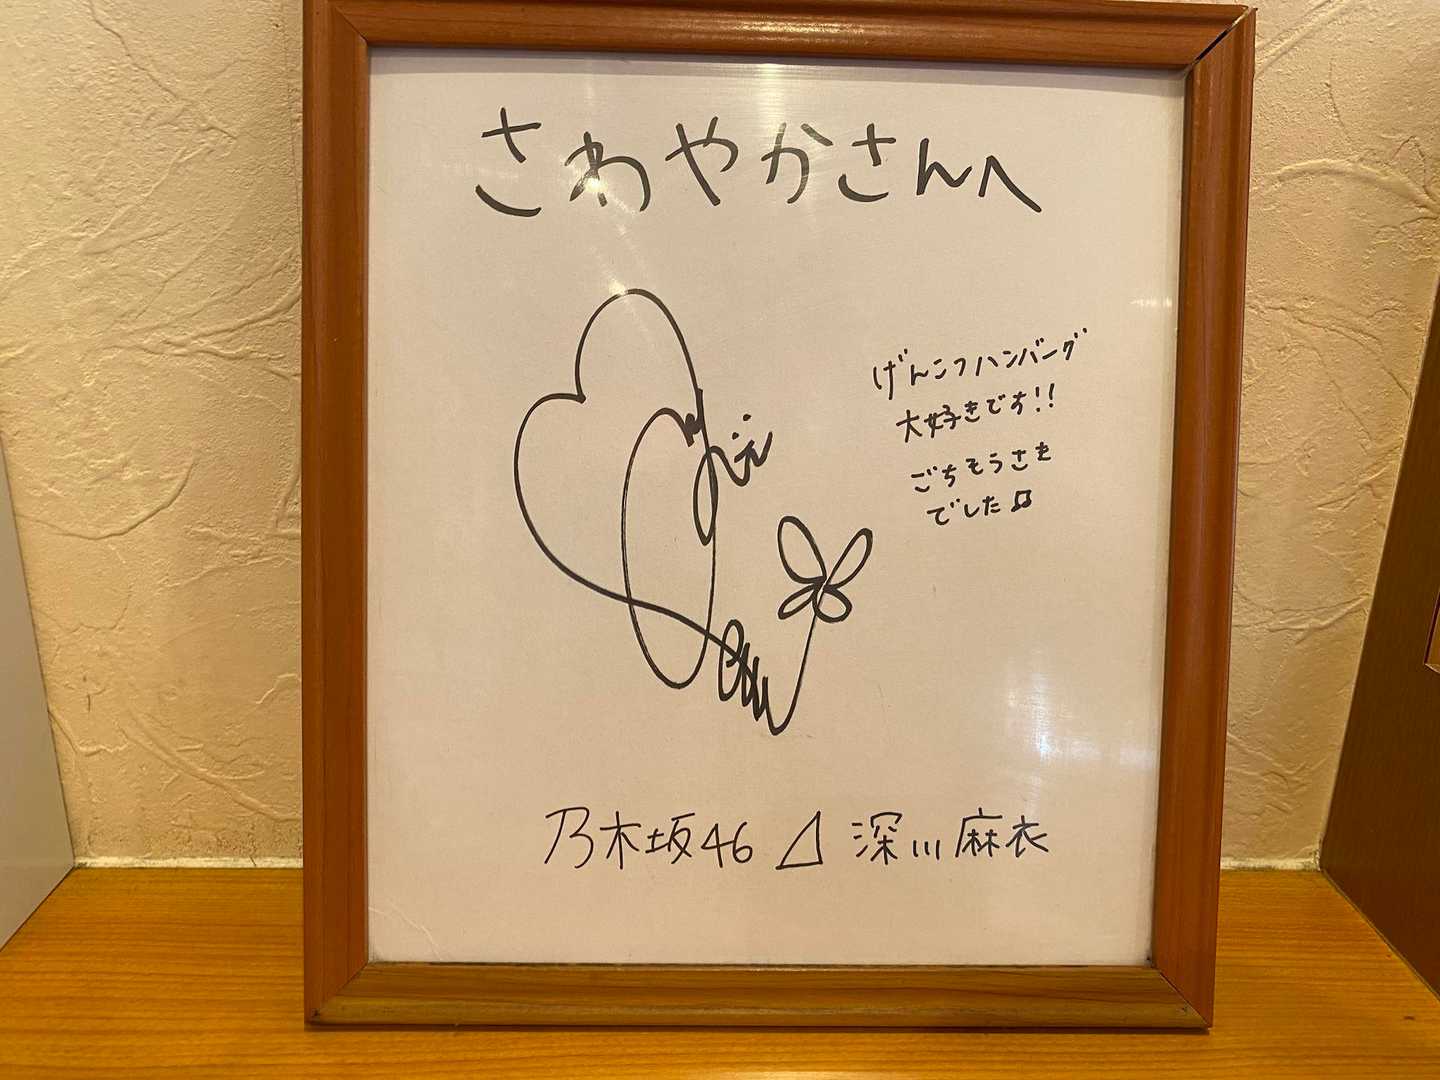 さわやかさんへ
げんこつハンバーグ
大好きです!!
ごちそうさま
でした♫
乃木坂46 ⊿ 深川麻衣